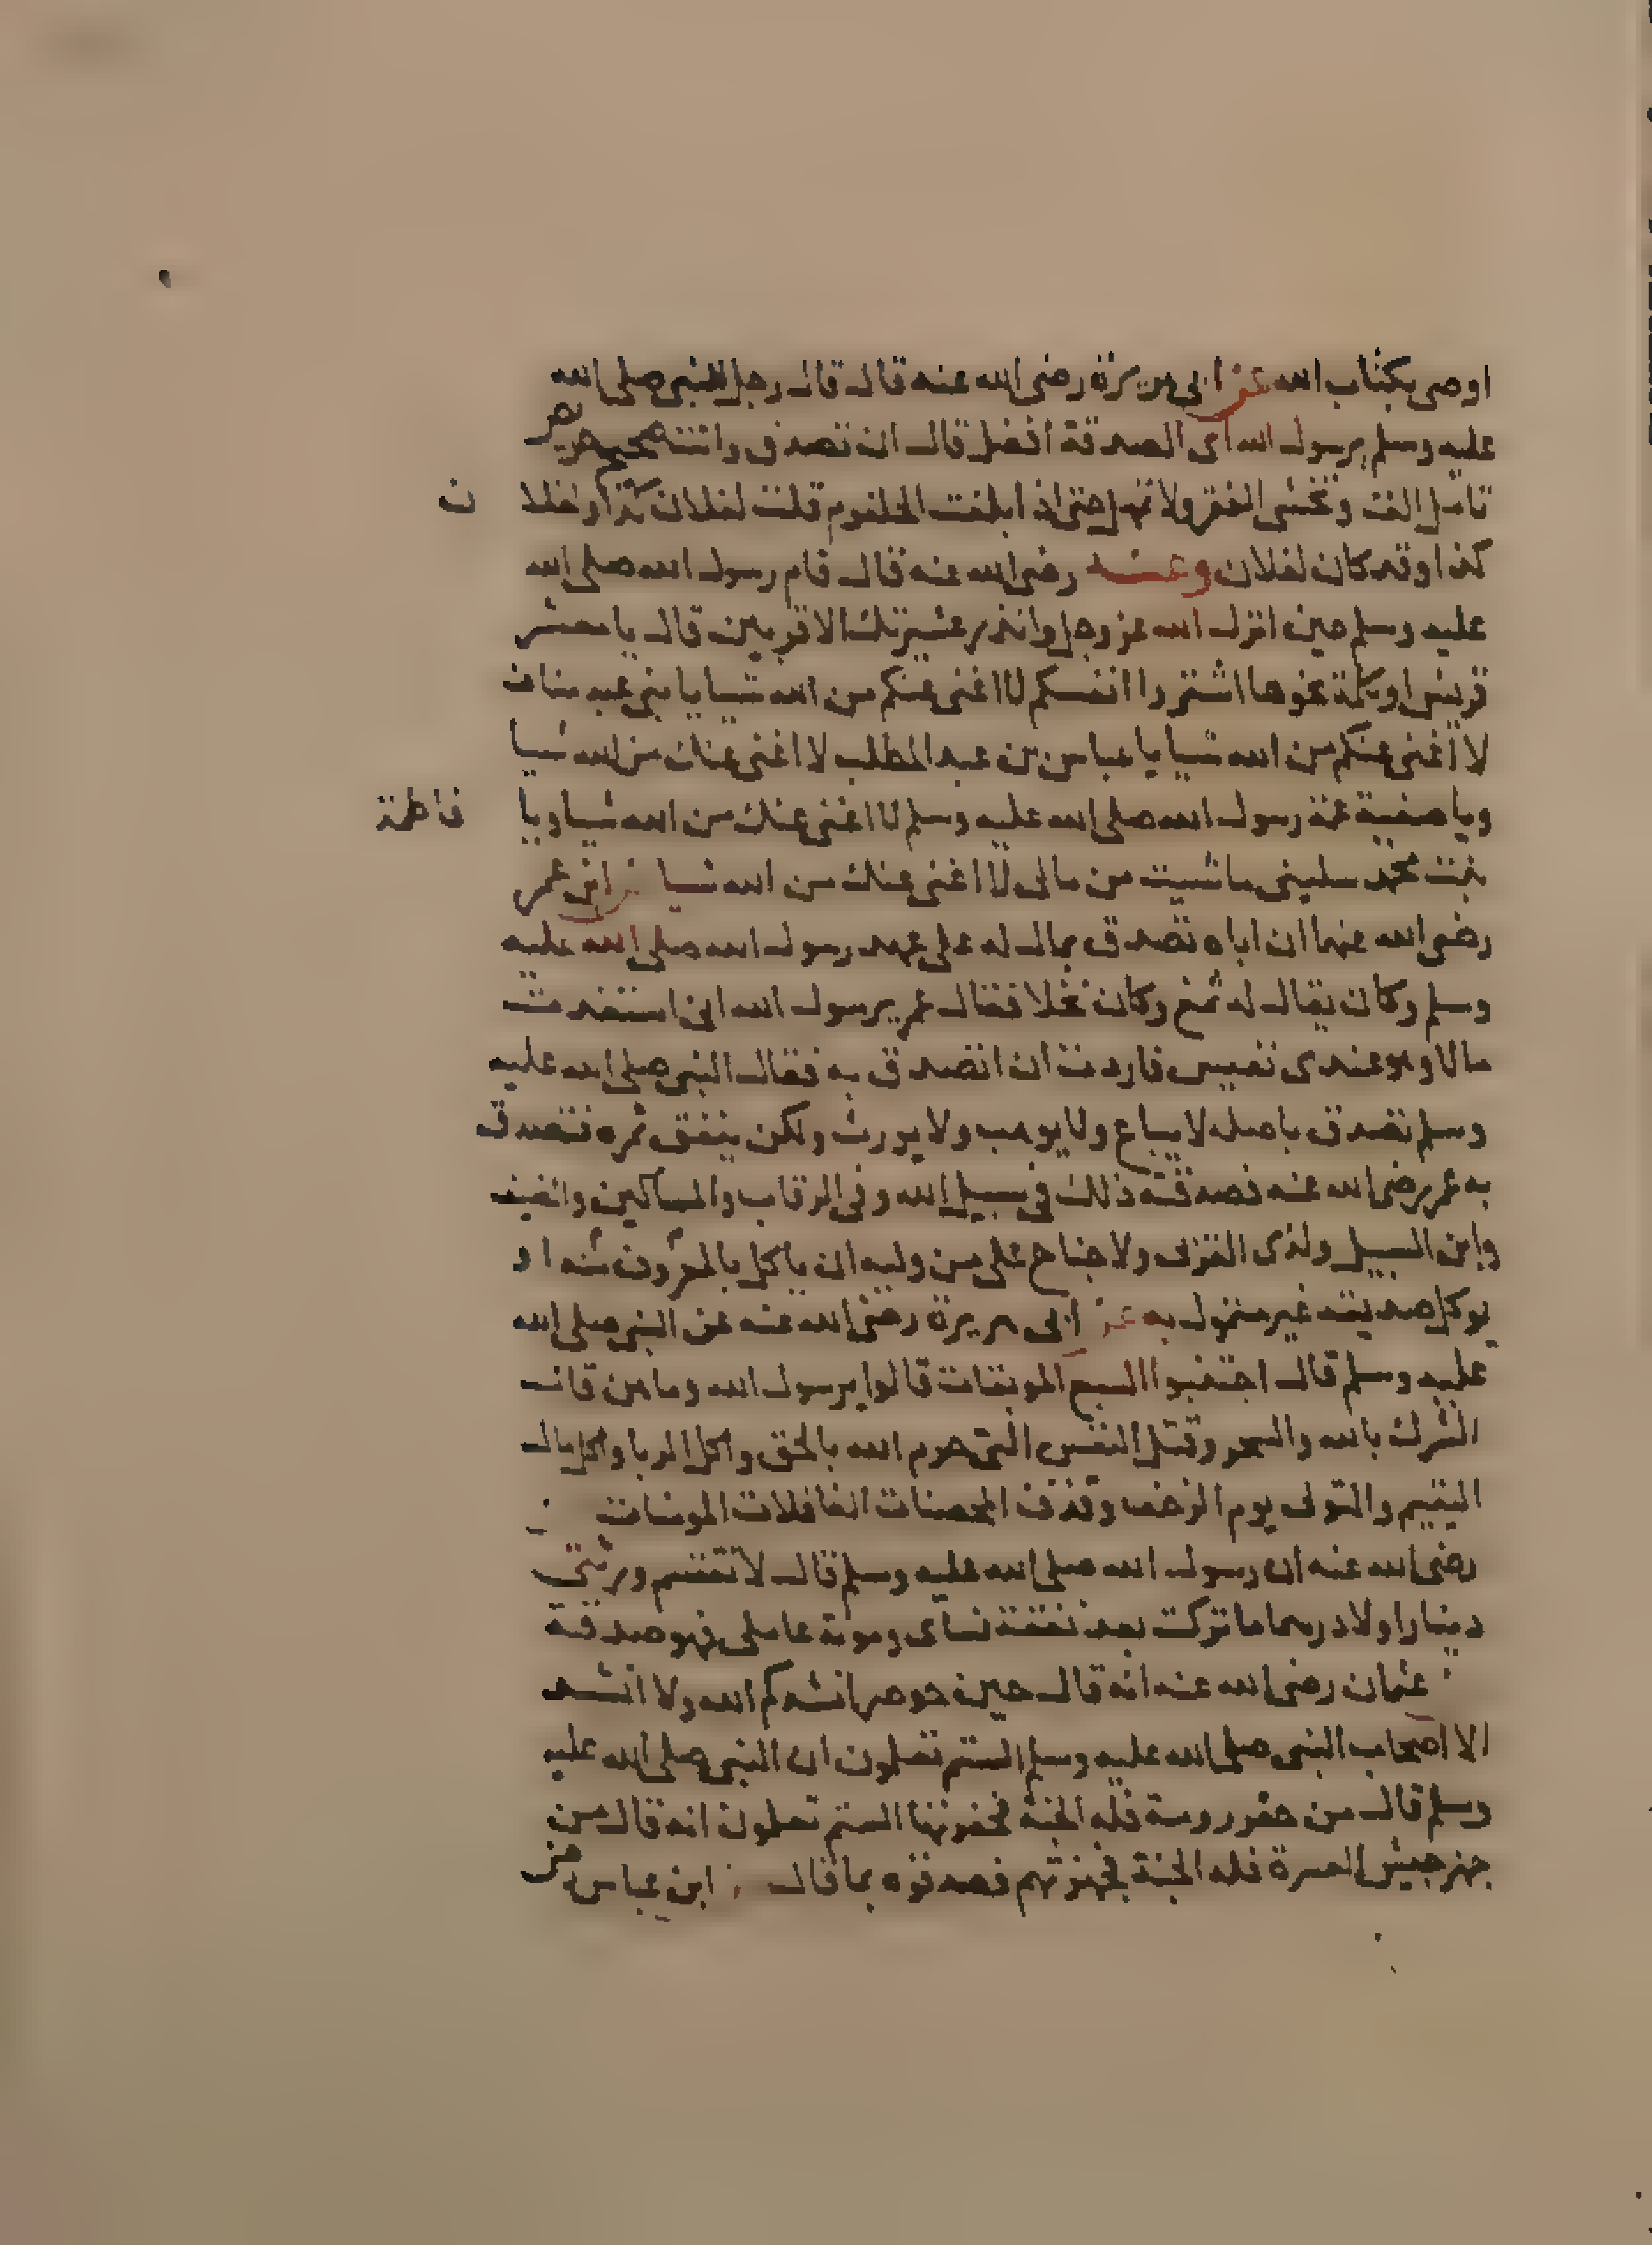 اوصى بكتاب الله عن ابى هريرة رضى الله عنه قال قال رجل للنبى صلى الله
عليه وسلم يرسول الله اى الصدقة افضل قال ان تصدق وانت صحيح حريص
تامل الغنى وتخشى الفقر ولا تمهل حتى اذا بلغت الحلقوم قلت لفلان كذا ولفلان
كذا وقد كان لفلان وعنه رضى الله عنه قال قام رسول الله صلى الله
عليه وسلم حين انزل الله عز وجل وانذر عشيرتك الاقربين قال يا معشر
قريش او كلمة نحوها اشتروا انفسكم لا اغنى عنكم من الله شيا يا بنى عبد مناف
لا اغنى عنكم من الله شيا يا عباس بن عبد المطلب لا اغنى عنك من الله شيا
ويا صفية عمة رسول الله صلى الله عليه وسلم لا اغنى عنك من الله شيا ويا فاطمة
بنت محمد سلينى ما شيت من مالى لا اغنى عنك من الله شيا ابن عمر
رضى الله عنهما ان اباه تصدق بمال له على عهد رسول الله صلى الله عليه
وسلم وكان يقال له ثمغ وكان نخلا فقال عمر يرسول الله انى استفدت
مالا وهو عندى نفيس فاردت ان اتصدق به فقال النبى صلى الله عليه
وسلم تصدق باصله لا يباع ولا يوهب ولا يورث ولكن ينفق ثمره فتصدق
به عمر رضى الله عنه فصدقته ذلك فى سبيل الله وفى الرقاب والمساكين والضيف
وابن السبيل ولذى القربى ولا جناح على من وليه ان ياكل بالمعروف منه او
يوكل صديقه غير متمول به عن ابى هريرة رضى الله عنه عن النبى صلى الله
عليه وسلم قال اجتنبوا السبع الموبقات قالوا يرسول الله وما هن قال
الشرك بالله والسحر وقتل النفس التى حرم الله بالحق واكل الربا واكل مال
اليتيم والتولى يوم الزحف وقذف المحصنات الغافلات المومنات
رضى الله عنه ان رسول الله صلى الله عليه وسلم قال لا تقتسم ورثتى
دينارا ولا درهما ما تركت بعد نفقة نساى ومونة عاملى فهو صدقة
عثمان رضى الله عنه انه قال حين حوصر انشدكم الله ولا انشد
الا اصحاب النبى صلى الله عليه وسلم الستم تعلمون ان النبى صلى الله عليه
وسلم قال من حفر رومة فله الجنة فحفرتها الستم تعلمون انه قال من
جهز جيش العسرة فله الجنة فجهزتهم فصدقوه بما قال ابن عباس